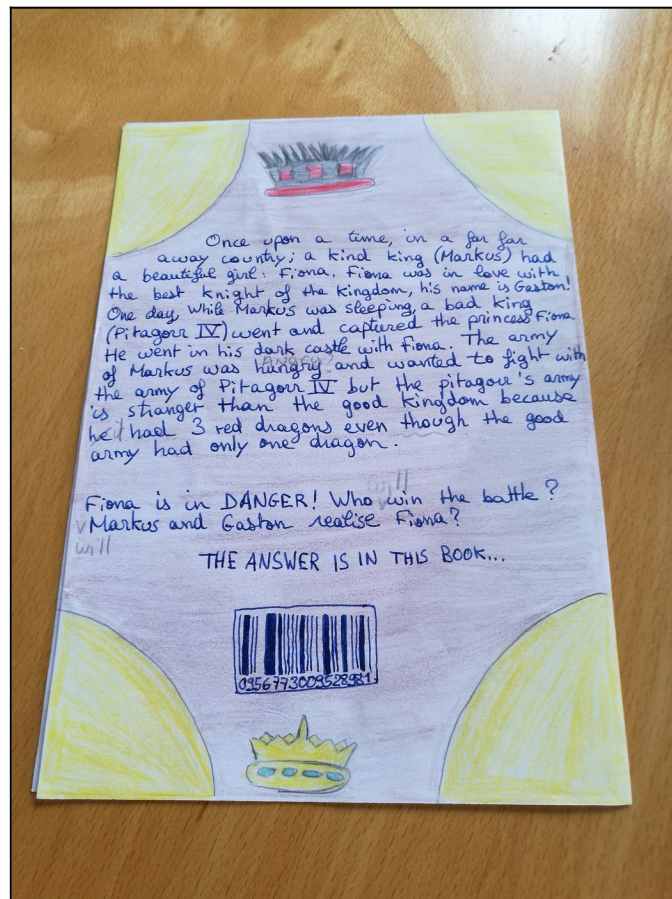 Once upon a time, in a far far
away country; a kind king (Markus) had
a beautiful girl: Fiona. Fiona was in love with
the best knight of the kingdom, his name is Gaston!
One day, while Markus was sleeping, a bad king
(Pitagour IV) went and captured the princess Fiona
He went in his dark castle with Fiona. The army
ANGRY?
of Markus was hungry and wanted to fight with
the army of Pitagour IV but the pitagour's army
is stranger than the good kingdom because
he had 3 red dragons even though the good
it
army had only one dragon.
will
Fiona is in DANGER! Who win the battle?
Markus and Gaston realise Fiona?
will
THE ANSWER IS IN THIS BOOK...
0956773009528981